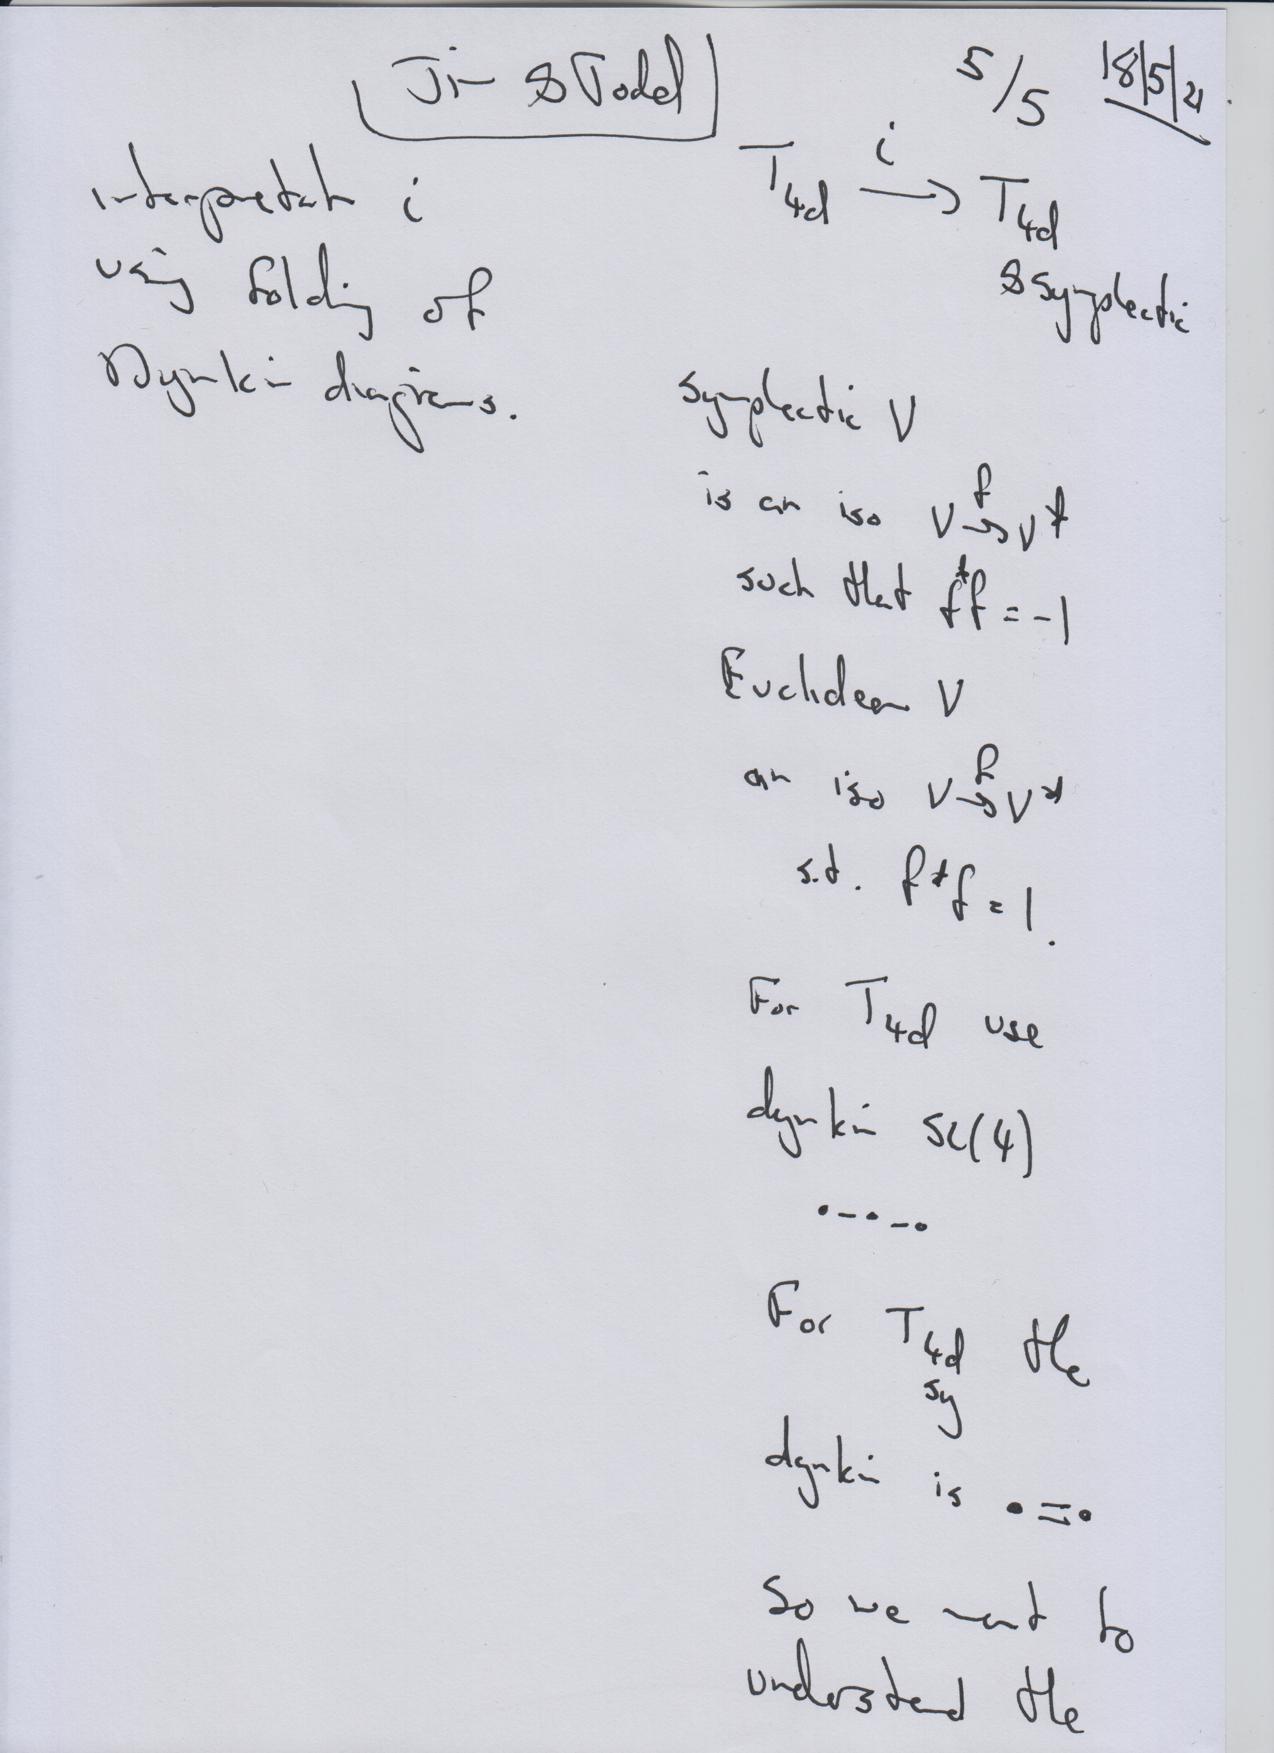 Jim & Todd
5/5 18/5/21
interpretatn i
using folding of
Dynkin diagrams.
T4d —i→ T4d
& symplectic
symplectic V
is an iso V —f→ V*
such that f*f = -1
Euclidean V
an iso V —f→ V*
s.t. f*f = 1.
For T4d use
dynkin SL(4)
•-•-•
For T4d the
sy
dynkin is •=•
So we want to
understand the